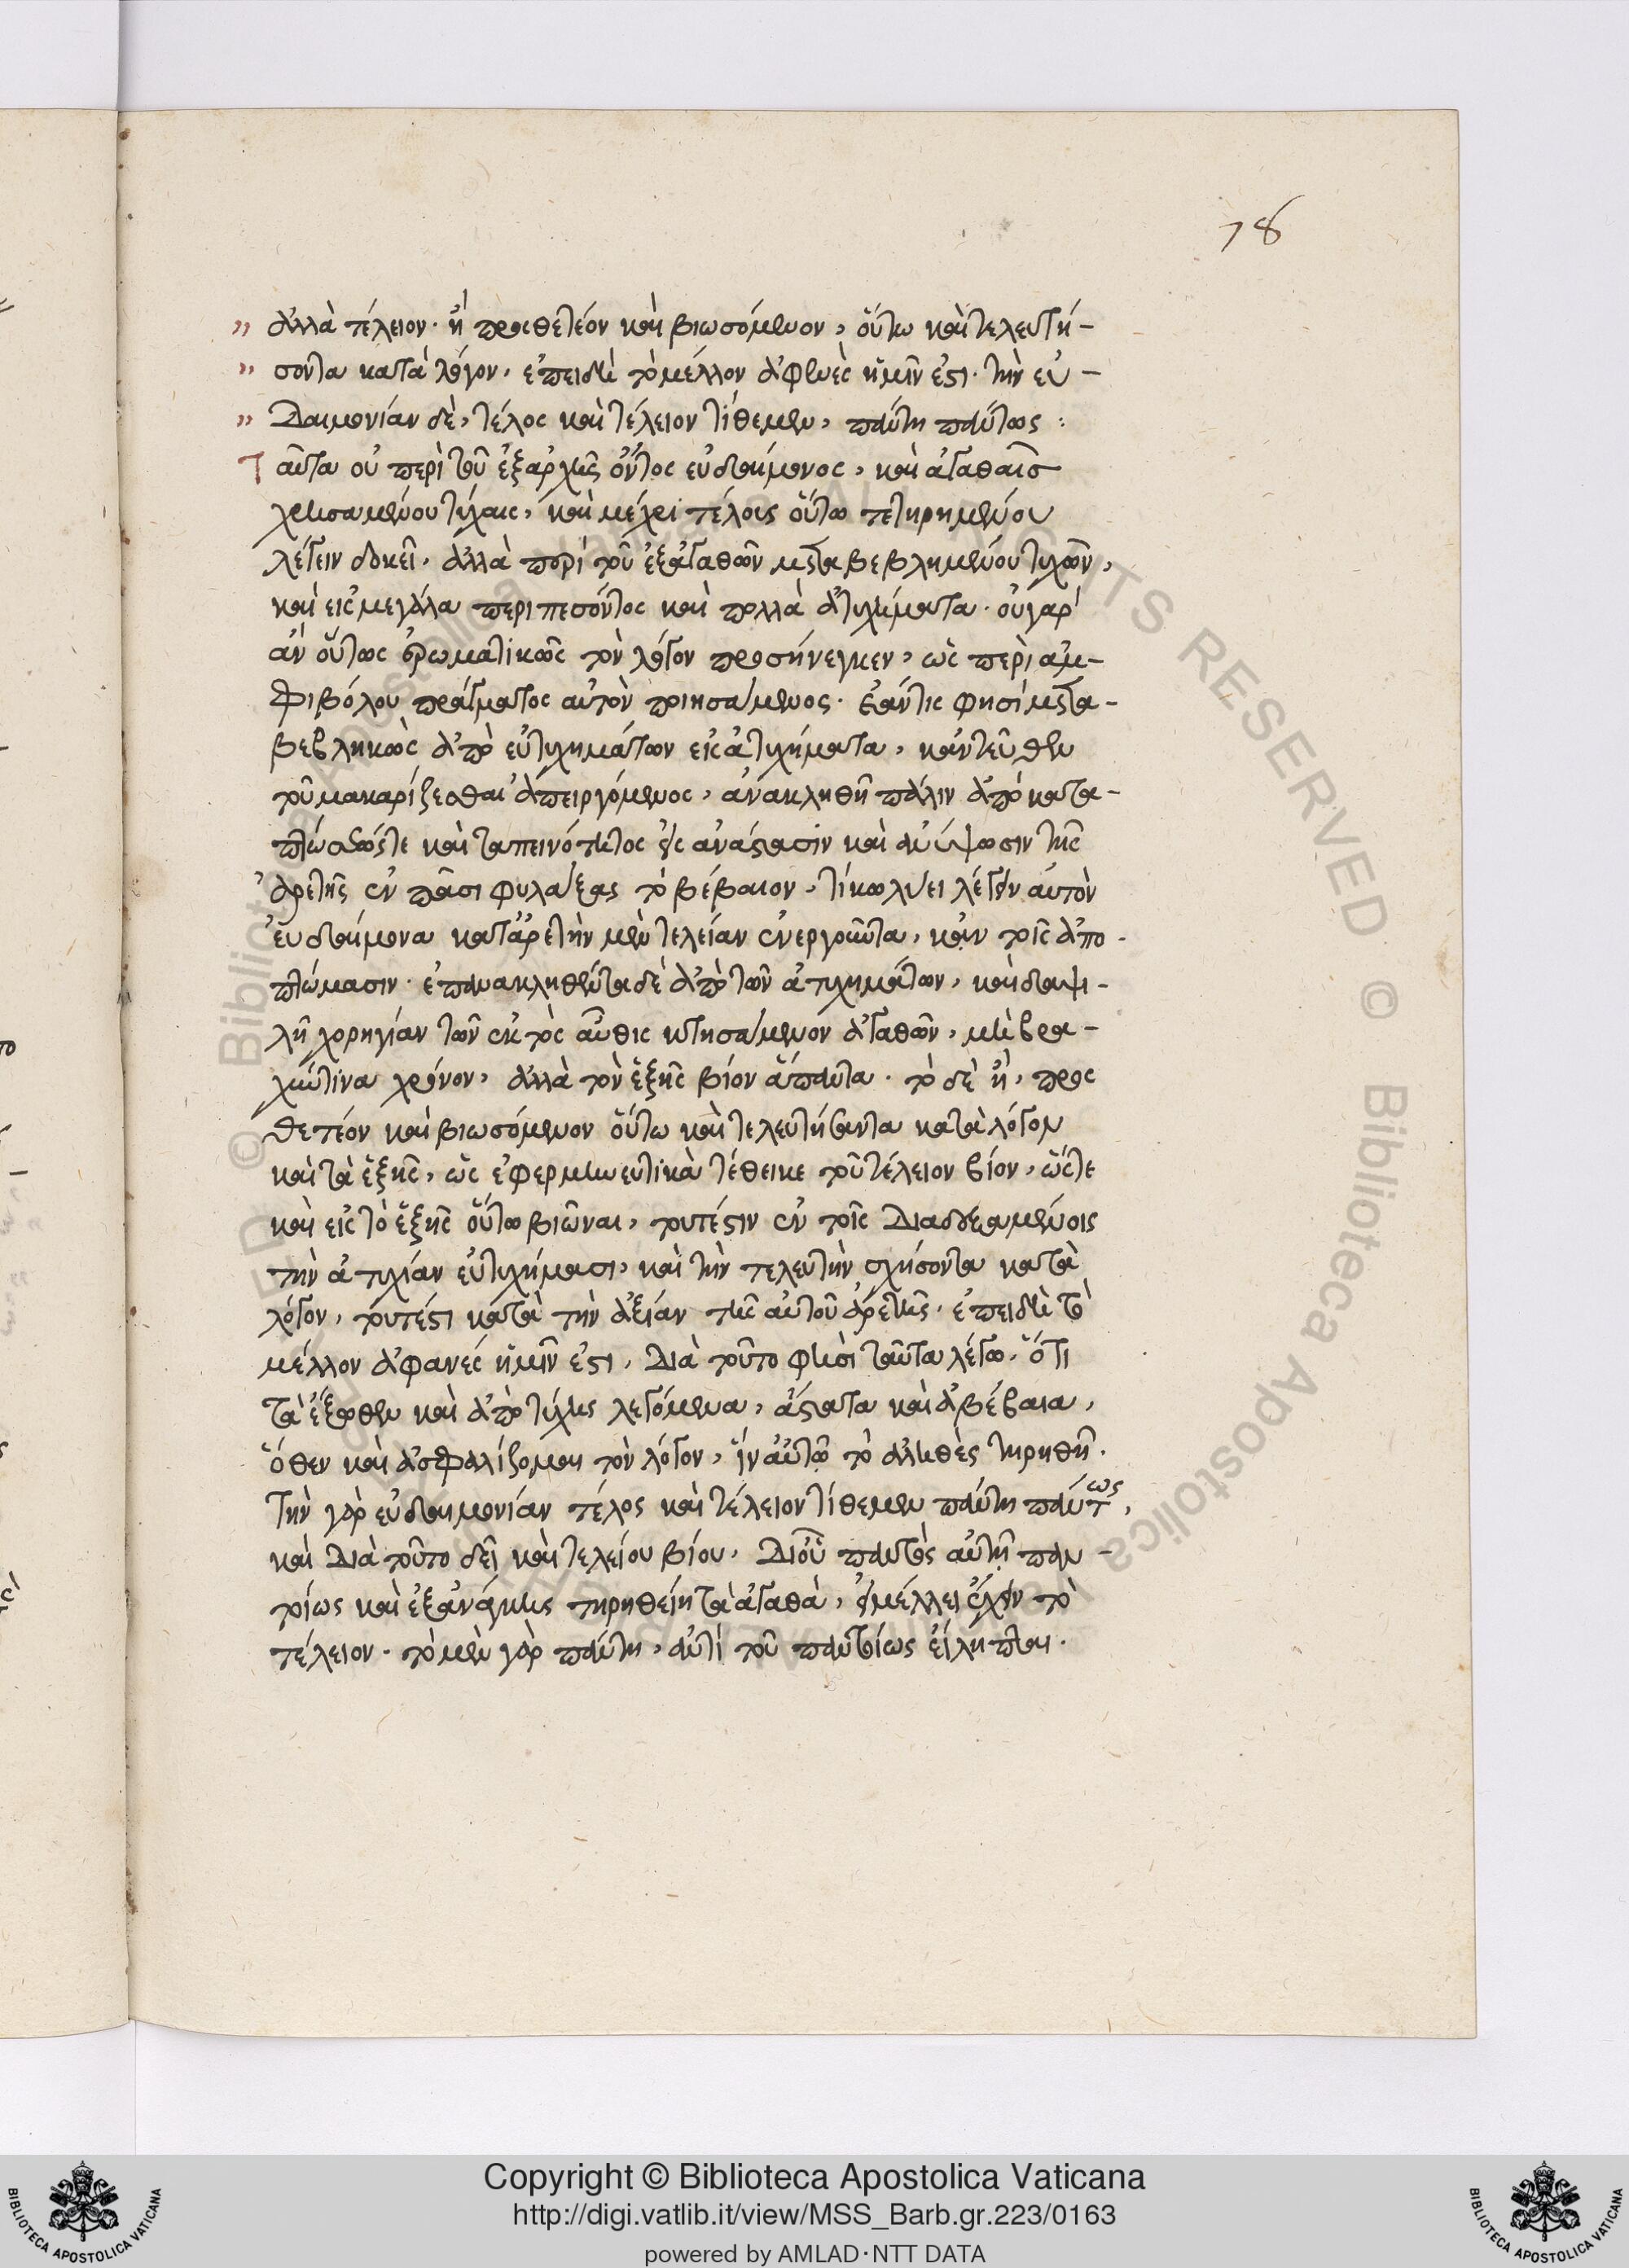 78
" ἀλλὰ τέλειον· ἢ προσθετέον καὶ βιωσόμενον, οὕτω καὶ τελευτή-
" σοντα κατὰ λόγον, ἐπειδὴ τὸ μέλλον ἀφανὲς ἡμῖν ἐστι. τὴν εὐ-
" δαιμονίαν δὲ, τέλος καὶ τέλειον τίθεμεν, πάντη πάντως :
Ταῦτα οὐ περὶ τοῦ ἐξαρχῆς ὄντος εὐδαίμονος, καὶ ἀγαθαῖς
χρησαμένου τύχαις, καὶ μέχρι τέλους οὕτω τετηρημένου
λέγειν δοκεῖ, ἀλλὰ περὶ τοῦ ἐξ ἀγαθῶν μεταβεβλημένου τυχῶν,
καὶ εἰς μεγάλα περιπεσόντος καὶ πολλὰ ἀτυχήματα. οὐ γὰρ
ἂν οὕτως ἐρωματικῶς τὸν λόγον προσήνεγκεν, ὡς περὶ ἀμ-
φιβόλου πράγματος αὐτὸν ποιησάμενος. ἐάν τις φησὶ μετα-
βεβληκὼς ἀπὸ εὐτυχημάτων εἰς ἀτυχήματα, κἀντεῦθεν
τοῦ μακαρίζεσθαι ἀπειργόμενος, ἀνακληθῇ πάλιν ἀπὸ κατα-
πτώσεώς τε καὶ ταπεινότητος εἰς ἀνάστασιν καὶ ἀνύψωσιν τῆς
ἀρετῆς ἐν πᾶσι φυλάξας τὸ βέβαιον, τί κωλύει λέγειν αὐτὸν
εὐδαίμονα κατ' ἀρετὴν μὲν τελείαν ἐνεργοῦντα, κἀν τοῖς ἀπο-
πτώμασιν. ἐπανακληθέντα δὲ ἀπὸ τῶν ἀτυχημάτων, καὶ δαψι-
λῆ χορηγίαν τῶν ἐκτὸς αὖθις κτησάμενον ἀγαθῶν, μὴ βρα-
χύν τινα χρόνον, ἀλλὰ τὸν ἑξῆς βίον ἅπαντα. τὸ δὲ ἢ, προσ
θετέον καὶ βιωσόμενον οὕτω καὶ τελευτήσαντα κατὰ λόγον
καὶ τὰ ἑξῆς, ὡς ἐφερμηνευτικὰ τέθεικε τοῦ τέλειον βίον, ὥστε
καὶ εἰς τὸ ἑξῆς οὕτω βιῶναι, τουτέστιν ἐν τοῖς διαδεξαμένοις
τὴν ἀτυχίαν εὐτυχήμασι, καὶ τὴν τελευτὴν σχήσοντα κατὰ
λόγον, τουτέστι κατὰ τὴν ἀξίαν τῆς αὐτοῦ ἀρετῆς, ἐπειδὴ τὸ
μέλλον ἀφανές ἡμῖν ἐστι, διὰ τοῦτο φησὶ ταῦτα λέγω, ὅτι
τὰ ἔξωθεν καὶ ἀπὸ τύχης λεγόμενα, ἄστατα καὶ ἀβέβαια,
ὅθεν καὶ ἀσφαλίζομαι τὸν λόγον, ἵν' αὐτῷ τὸ ἀληθὲς τηρηθῇ.
Τὴν γὰρ εὐδαιμονίαν τέλος καὶ τέλειον τίθεμεν πάντη πάντως,
καὶ διὰ τοῦτο δεῖ καὶ τελείου βίου, διοῦ παντὸς αὐτῇ παν-
τοίως καὶ ἐξανάγκης τηρηθείη τὰ ἀγαθὰ, εἰ μέλλει ἔχειν τὸ
τέλειον. τὸ μὲν γὰρ πάντη, ἀντὶ τοῦ παντοίως εἴληπται.
Copyright © Biblioteca Apostolica Vaticana
http://digi.vatlib.it/view/MSS_Barb.gr.223/0163
powered by AMLAD·NTT DATA